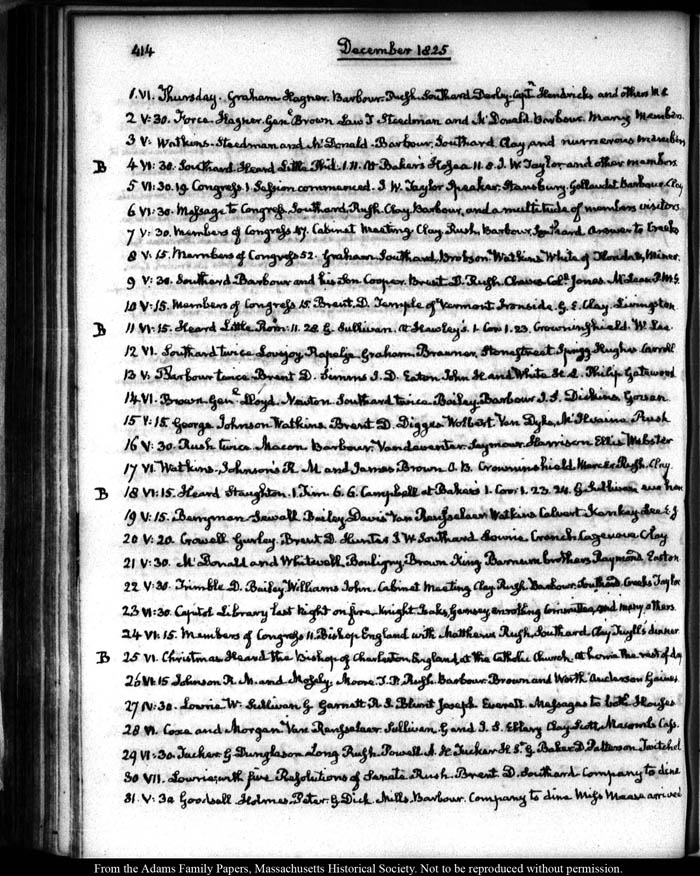 414 December 1825
1. VI. Thursday. Graham Hagner. Barbour. Rush. Southard Capt. Hendricks and others
2 V: 30. Force. Hagner. Genl. Brown Law T Steedman and McDonald. Barbour. Many Members
3 V: Watkins. Steedman and McDonald. Barbour. Southard Clay and numerous members
B 4 VI: 30. Southard Heard Little Phil. 1. 11. at Bakers Hosea 11. 8. J. W. Taylor and other members
5 VI: 30. 19 Congress 1 Session commenced. J W. Taylor Speaker. Stansbury. Gallaudet Barbour Clay
6 VI: 30. Message to Congress. Southard, Rush, Clay, Barbour, and a multitude of members visitors
7 V: 30. Members of Congress 47. Cabinet Meeting. Clay, Rush, Barbour, Southard Answer to Creeks
8 V: 15. Members of Congress 52. Graham Southard, Brobson Watkins White of Florida, Miner.
9 V: 30. Southard Barbour and his Son Cooper. Brent. D. Rush. Coll. Jones. McLean P. M. G.
10 V: 15. Members of Congress 15. Brent. D. Temple of Vermont Ironside. G. E. Clay. Livingston
B 11 VI: 15. Heard Little Rom: 11. 28. G. Sullivan. at Hawley's. 1. Cor. 1. 23. Crowninshield. W. Lee.
12 VI. Southard twice Lovejoy. Rapalje Graham. Stonestreet Sprigg Hughes Carroll
13 V: Barbour twice. Brent D. Simms J. D. Eaton John H. and White H. L. Philip Gatewood
14 VI. Brown Genl. Lloyd. Newton. Southard twice. Bailey Barbour J. S. Dickins Govan
15 V: 15. George Johnson Watkins Brent D. Digges Wolbert Van Dyke, McIlvaine Rush
16 V: 30. Rush twice. Macon Barbour, Vandeventer Seymour Harrison Ellis Webster
17 VI. Watkins. Johnson's R. M and James Brown O. B. Crowninshield Rush, Clay.
B 18 VI: 15. Heard Staughton. 1. Tim. 6. 6. Campbell at Bakers 1. Cor. 1. 23. 24. G. Sullivan
19 V: 15. Berryman Sewall. Bailey Davis Van Rensselaer Watkins Calvert Kankey
20 V: 20. Crowell Gurley. Brent D. Hunter J W Southard Lowrie Cranch Clay
21 V: 30. McDonald and Whitwell, Bouligny Brown King Barnum brothers Raymond Easton
22 V: 30. Trimble D. Bailey Williams John. Cabinet Meeting Clay Rush Barbour, Southard Creeks Taylor
23 VI: 30. Capitol Library last Night on fire. Knight Isaks Garnsey enrolling Committee, and many others.
24 VI: 15. Members of Congress 11. Bishop England with Matthews Rush, Southard Clay Tuyll's dinner
B 25 VI. Christmas. Heard the Bishop of Charleston England, at the Catholic Church. At home the rest of day
26 VI: 15 Johnson R. M. and Mosely. Moore. T. P. Rush. Barbour Brown and Worth Anderson Gaines.
27 IV: 30. Lowrie W: Sullivan G Garnett R. S. Blunt Joseph Everett. Messages to both Houses
28 VI. Coxe and Morgan Van Rensselaer Sullivan. G and J. S. Ellery Clay Scott, Macomb Cass.
29 VI: 30. Tucker. G Dunglason Long Rush. Powell A. H. Tucker H. St. G. Baker D. Patterson Twitchel
30 VII. Lowrie with five Resolutions of Senate Rush. Brent D. Southard Company to dine
31. V: 30 Goodsell Holmes. Peter. G Dick. Mills. Barbour. Company to dine Miss arrived
From the Adams Family Papers, Massachusetts Historical Society. Not to be reproduced without permission.